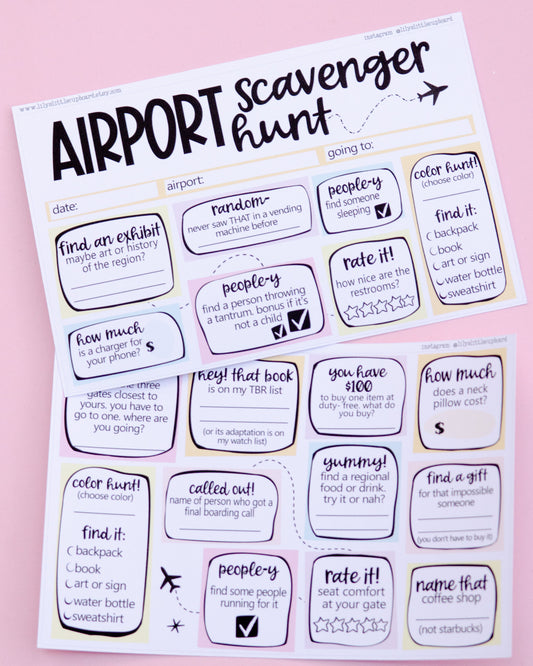 www.lilyslittlecupboard.etsy.com
instagram @lilyslittlecupboard
AIRPORT scavenger
hunt
date:
airport:
going to:
find an exhibit
maybe art or history
of the region?
random-
never saw THAT in a vending
machine before
people-y
find someone
sleeping
color hunt!
(choose color)
find it:
backpack
book
art or sign
water bottle
sweatshirt
how much
is a charger for
your phone? $
people-y
find a person throwing
a tantrum. bonus if it's
not a child
rate it!
how nice are the
restrooms?
instagram @lilyslittlecupboard
three
gates closest to
yours. you have to
go to one. where are
you going?
hey! that book
is on my TBR list
(or its adaptation is on
my watch list)
you have
$100
to buy one item at
duty- free. what do
you buy?
how much
does a neck
pillow cost?
$
color hunt!
(choose color)
find it:
backpack
book
art or sign
water bottle
sweatshirt
called out!
name of person who got a
final boarding call
yummy!
find a regional
food or drink.
try it or nah?
find a gift
for that impossible
someone
(you don't have to buy it)
people-y
find some people
running for it
rate it!
seat comfort
at your gate
name that
coffee shop
(not starbucks)